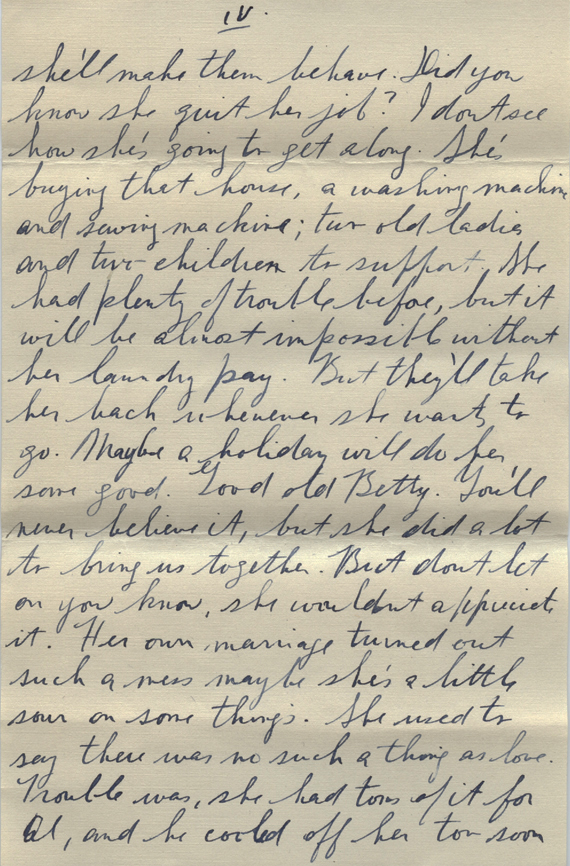 IV.
she'll make them behave. Did you
know she quit her job? I dont see
how she's going to get along. She's
buying that house, a washing machine
and sewing machine; two old ladies
and two children to support. She
had plenty of trouble before, but it
will be almost impossible without
her laundry pay. But they'll take
her back whenever she wants to
go. Maybe a holiday will do her
some good. Good old Betty. You'll
never believe it, but she did a lot
to bring us together. But dont let
on you know, she wouldnt appreciate
it. Her own marriage turned out
such a mess maybe she's a little
sour on some things. She used to
say there was no such a thing as love.
Trouble was, she had tons of it for
Al, and he cooled off her too soon